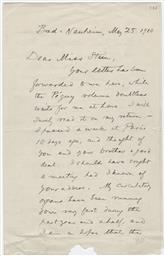 Bad-Nauheim, May 25. 1910
Dear Miss Stein,
Your letter has been
forwarded to me here, while
the volume doubtless
waits for me at home. I will
duly read it on my return —
I spent a week at Paris
10 days ago, and thought of
you and your brother a good
deal. I should have sought
a meeting had I known of
your address. My circulatory
organs have been running
down very fast during the
last year and a half, and
I am in hopes that the